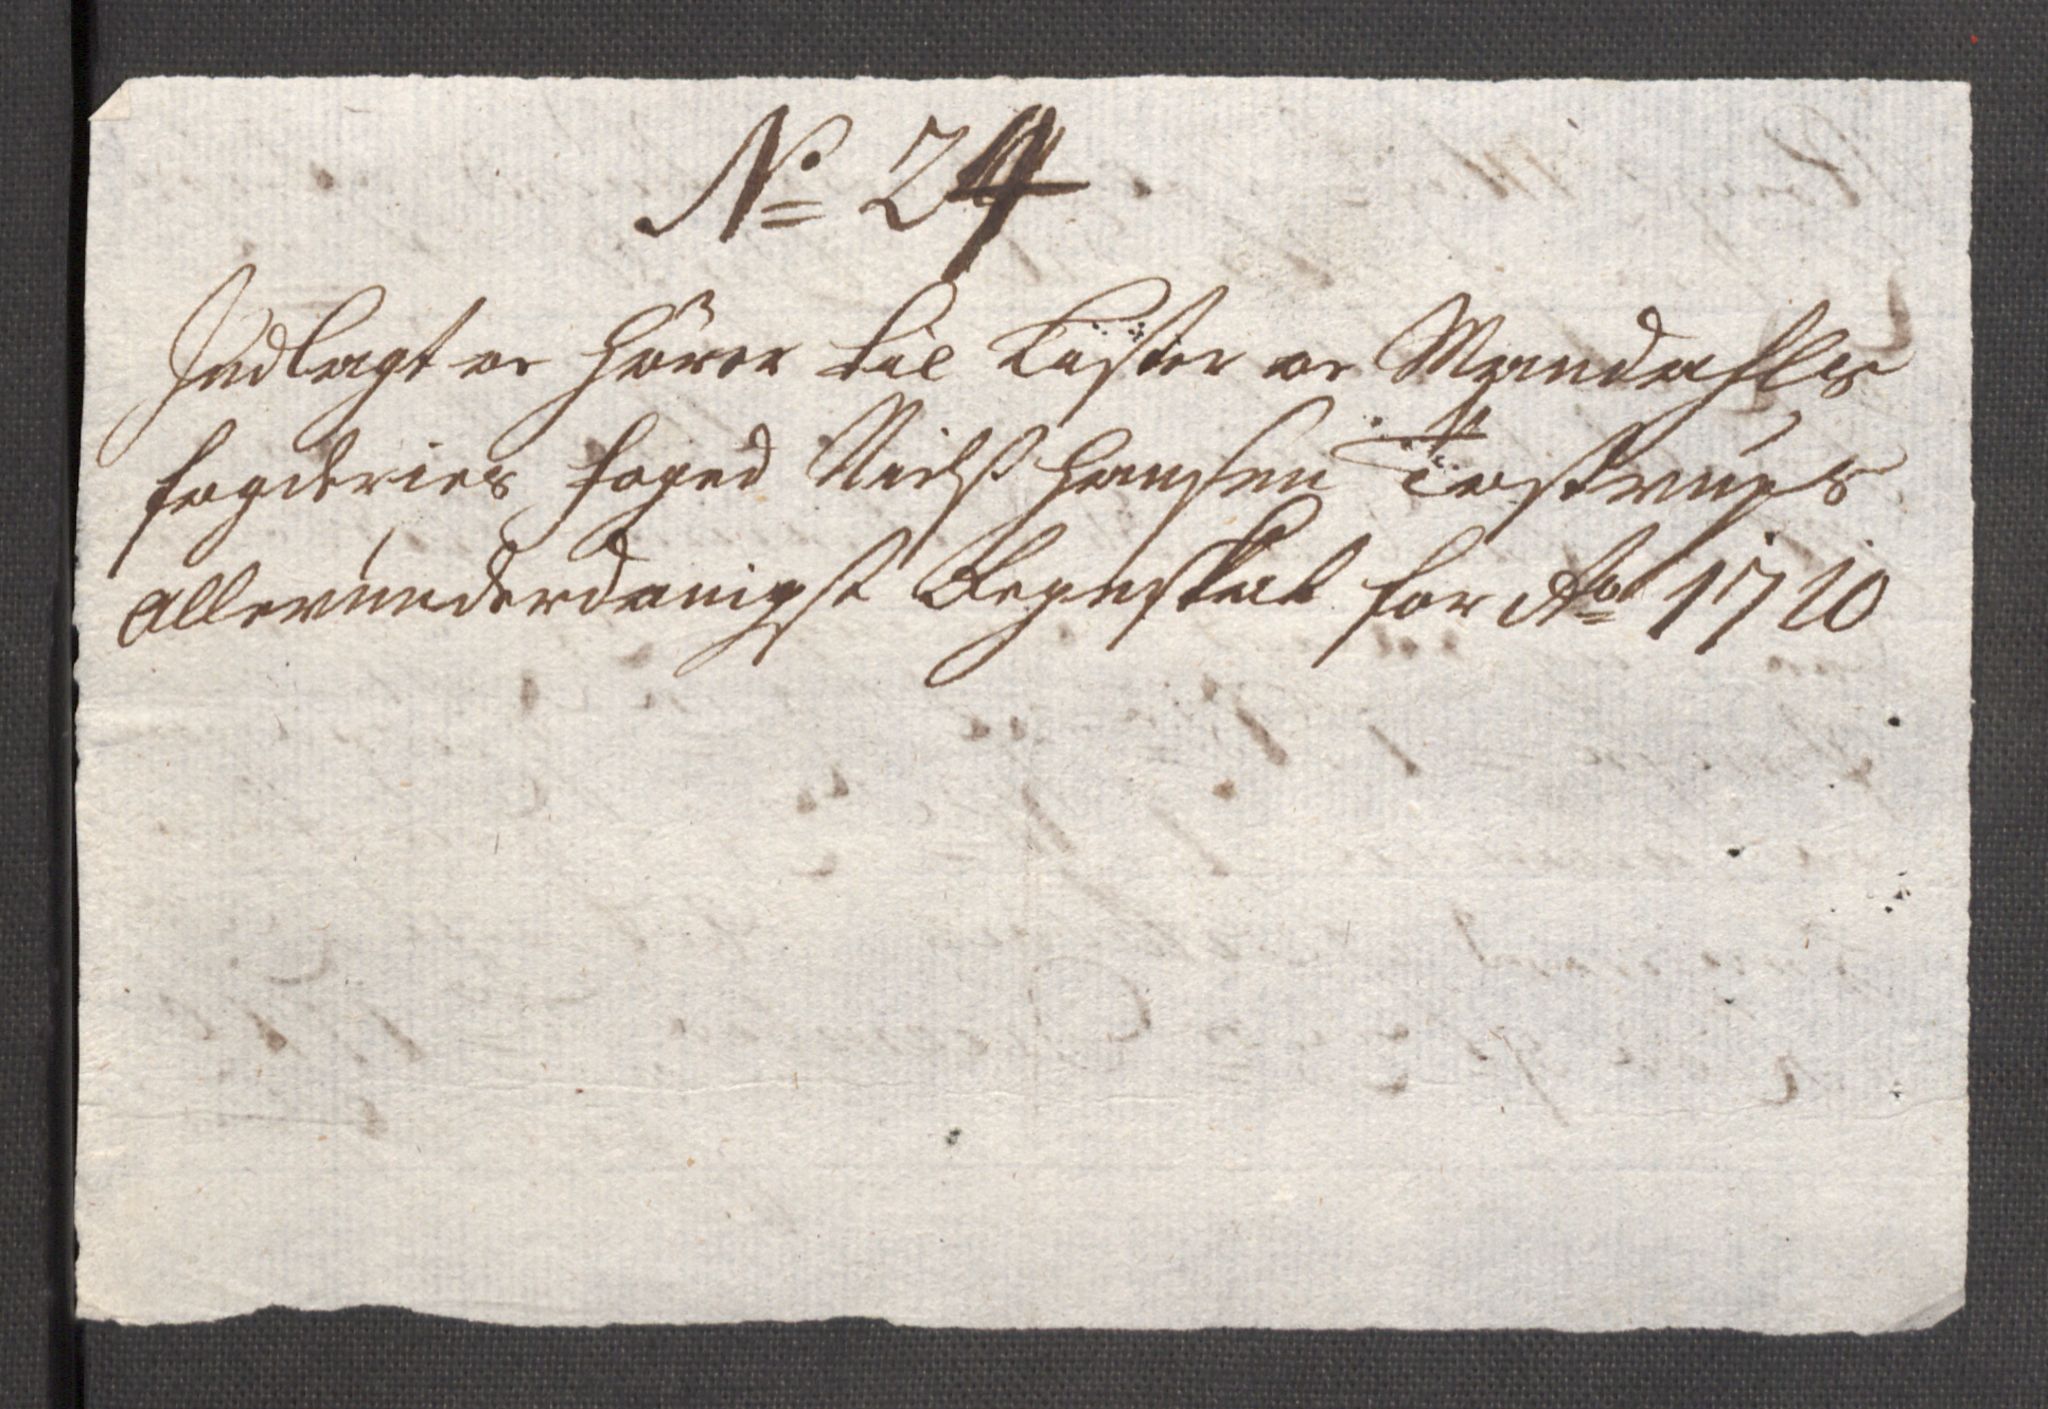 No 24
Indlagt oc hörer til Lister oc Mandahls
fogderies foged Nielss Hansen Tostrups
allerunderdanigst Regnskab for Ao 1710